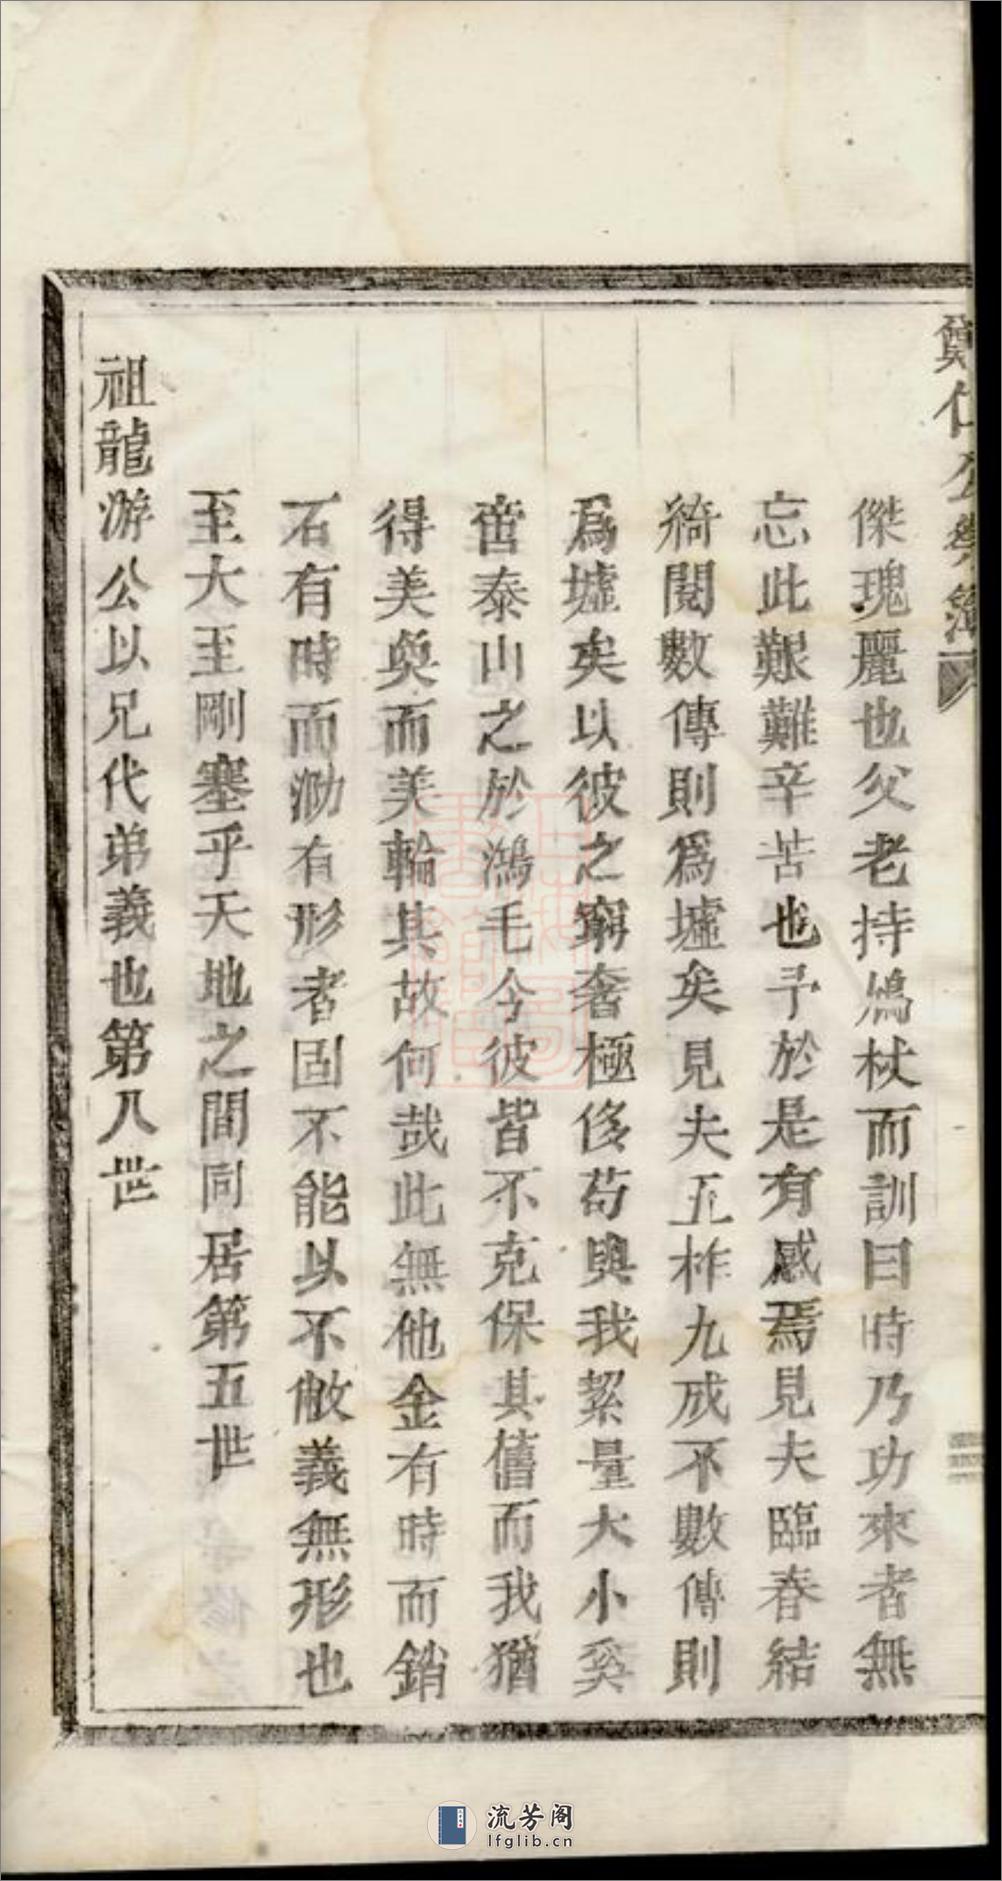 傑瑰麗也父老持鳩杖而訓曰時乃功來者無
忘此艱難辛苦也予於是有感焉見夫臨春結
綺閱數傳則爲墟矣見夫五柞九成不數傳則
爲墟矣以彼之窮奢極侈苟與我絜量大小奚
啻泰山之於鴻毛今彼皆不克保其舊而我猶
得美奐而美輪其故何哉此無他金有時而銷
石有時而泐有形者固不能以不敝義無形也
至大至剛塞乎天地之間同居第五世
祖龍游公以兄代弟義也第八世
流芳阁
lfglib.cn